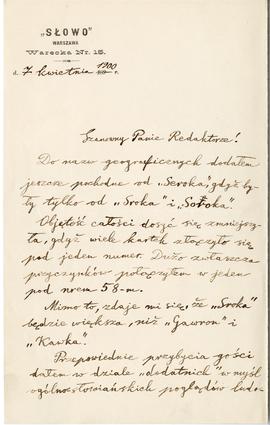 „SŁOWO”
WARSZAWA
Warecka Nr. 15.
d. 7 kwietnia 1900 r.
Szanowny Panie Redaktorze!
Do nazw geograficznych dodałem
jeszcze pochodne od „Seroka”, gdyż by-
ły tylko od „Sroka” i „Soroka”.
Objętość całości dosyć się zmniejszy-
ła, gdyż wiele kartek złączyło się
pod jeden numer. Dużo zwłaszcza
przyczynków połączyłem w jeden
pod nrem 58-m.
Mimo to, zdaje mi się, że „Sroka”
będzie większa, niż „Gawron” i
„Kawka”.
Przepowiednie przybycia gości
dałem w dziale „dodatnich” w myśl
ogólnosłowiańskich poglądów ludo-